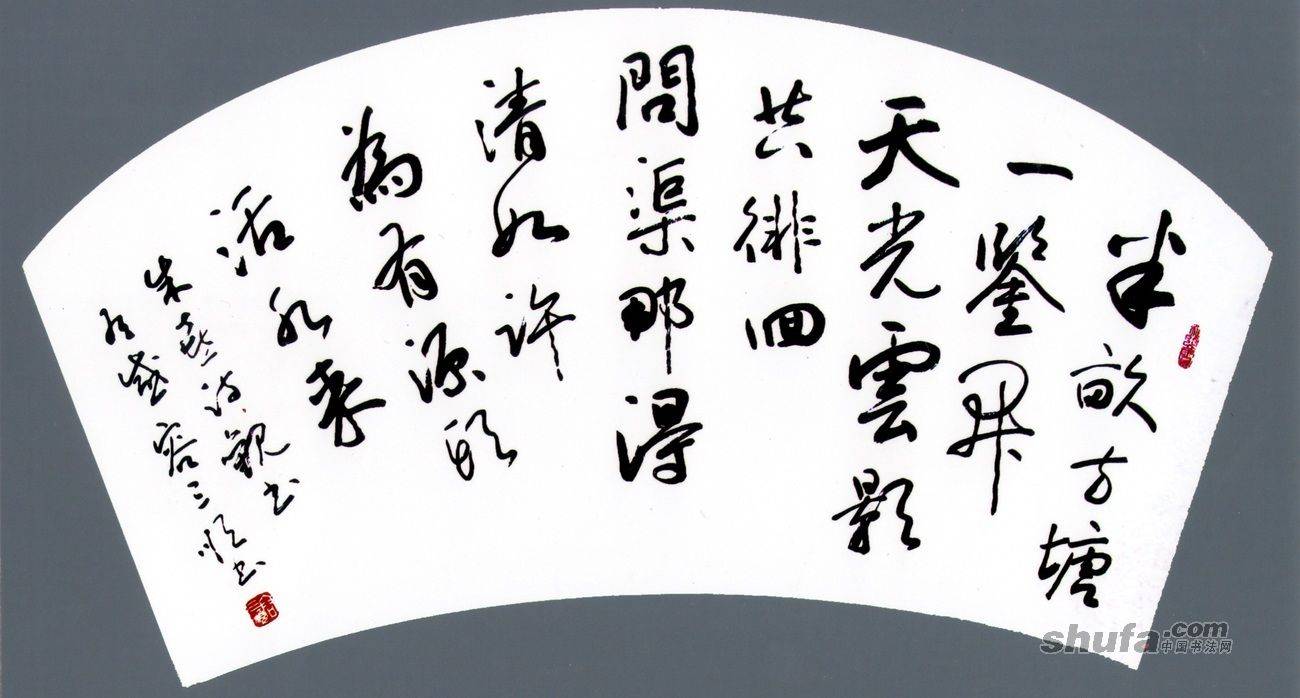 半畝方塘
一鑒開
天光雲影
共徘徊
問渠那得
清如許
為有源頭
活水來
朱熹詩觀書
有感 容三順書
shufa.com
中国书法网